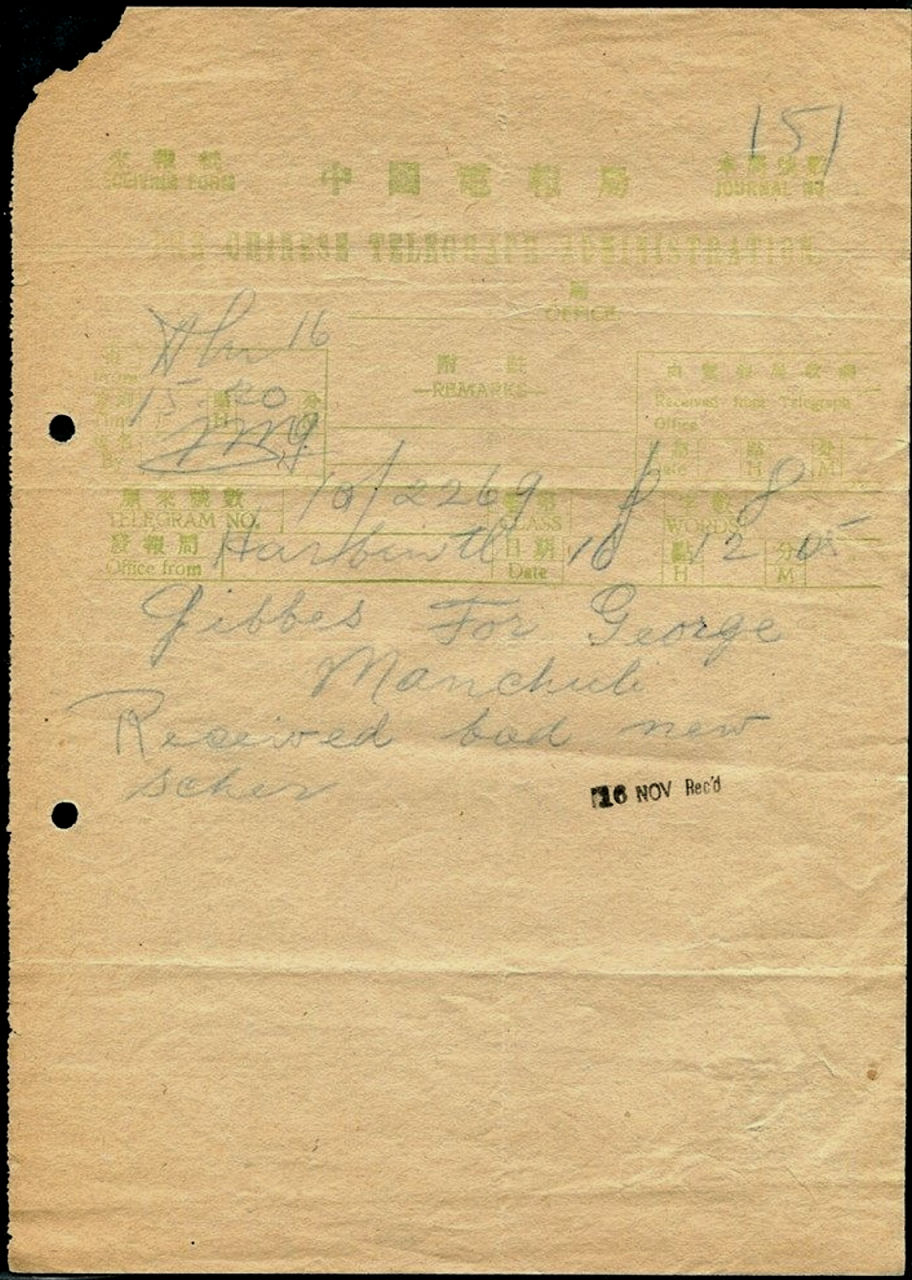 151
來報紙 中國電報局
DELIVER FORM JOURNAL NO.
THE CHINESE TELEGRAPH ADMINISTRATION
局
OFFICE
16
附註
—REMARKS—
15 20 點 分
H
由電報局收到
Received from Telegraph
Office
點 分
Date H M
原來號數 10/2269 字數 8
TELEGRAM NO. CLASS WORDS
發報局 日期 16 點 12 分 05
Office from Date H M
Gibbes For George
Manchuli
Received bad new
scher
16 NOV Rec'd